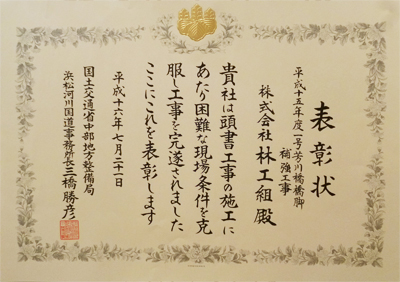 表彰状
平成十五年度一号芳川橋橋脚
補強工事
株式会社林工組殿
貴社は頭書工事の施工に
あたり困難な現場条件を克
服し工事を完遂されました
ここにこれを表彰します
平成十六年七月二十一日
国土交通省中部地方整備局
浜松河川国道事務所長三橋勝彦